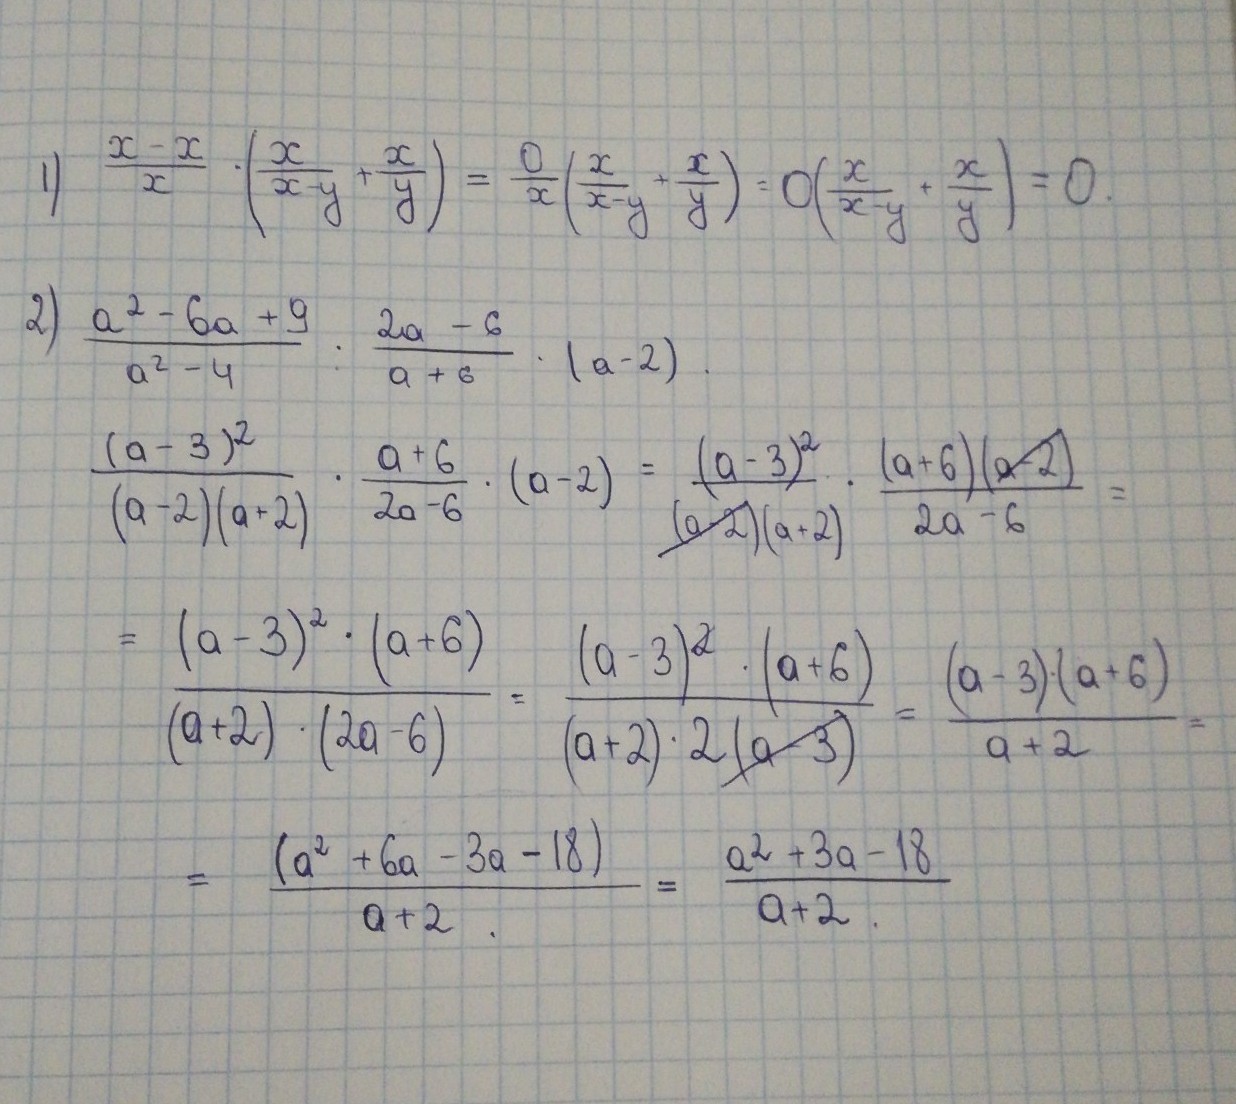 1) \frac{x-x}{x} · (\frac{x}{x-y} + \frac{x}{y}) = \frac{0}{x} (\frac{x}{x-y} + \frac{x}{y}) = 0 (\frac{x}{x-y} + \frac{x}{y}) = 0.
2) \frac{a² - 6a + 9}{a² - 4} : \frac{2a - 6}{a + 6} · (a - 2).
\frac{(a - 3)²}{(a - 2)(a + 2)} · \frac{a + 6}{2a - 6} · (a - 2) = \frac{(a - 3)²}{(a - 2)(a + 2)} · \frac{(a + 6)(a - 2)}{2a - 6} =
= \frac{(a - 3)² · (a + 6)}{(a + 2) · (2a - 6)} = \frac{(a - 3)² · (a + 6)}{(a + 2) · 2(a - 3)} = \frac{(a - 3) · (a + 6)}{a + 2} =
= \frac{(a² + 6a - 3a - 18)}{a + 2}. = \frac{a² + 3a - 18}{a + 2}.